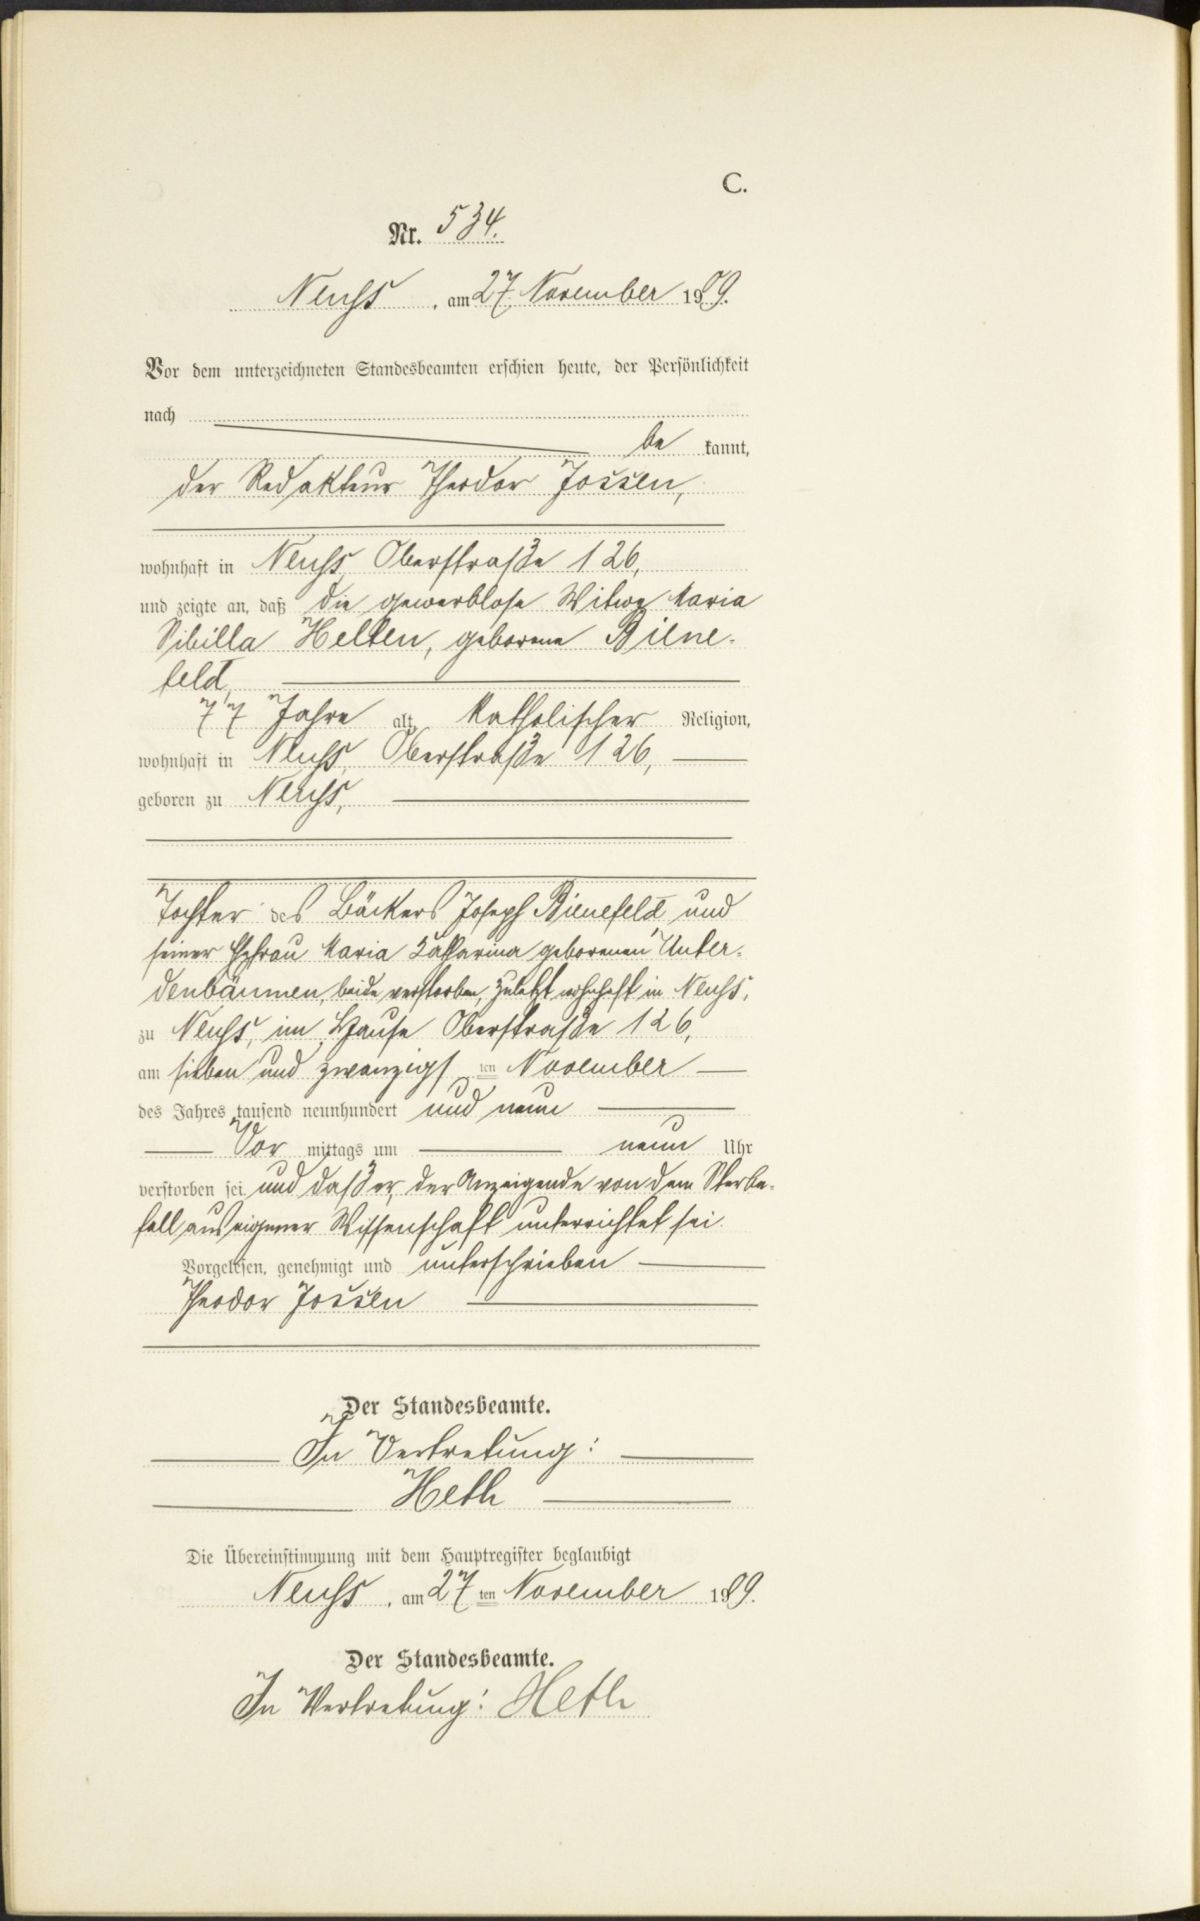 C.
Nr. 534.
Neuss, am 27. November 1909.
Vor dem unterzeichneten Standesbeamten erschien heute, der Persönlichkeit
nach
be kannt,
der Redakteur Theodor Jossen,
wohnhaft in Neuss, Oberstraße 126,
und zeigte an, daß die gewerblose Witwe Maria
Sibilla Hellen, geborene Biene-
feld,
77 Jahre alt, katholischer Religion,
wohnhaft in Neuss, Oberstraße 126,
geboren zu Neuss,
Tochter des Bäckers Joseph Bienefeld und
seiner Ehefrau Maria Katharina geborenen Unter-
denbäumen, beide verstorben, zuletzt wohnhaft in Neuss,
zu Neuss, im Hause Oberstraße 126,
am sieben und zwanzigsten November
des Jahres tausend neunhundert und neun
Vor mittags um neun Uhr
verstorben sei und daß er, der Anzeigende von dem Sterbe-
fall aus eigener Wissenschaft unterrichtet sei.
Vorgelesen, genehmigt und unterschrieben
Theodor Jossen
Der Standesbeamte.
In Vertretung:
Heth
Die Übereinstimmung mit dem Hauptregister beglaubigt
Neuss, am 27ten November 1909.
Der Standesbeamte.
In Vertretung: Heth